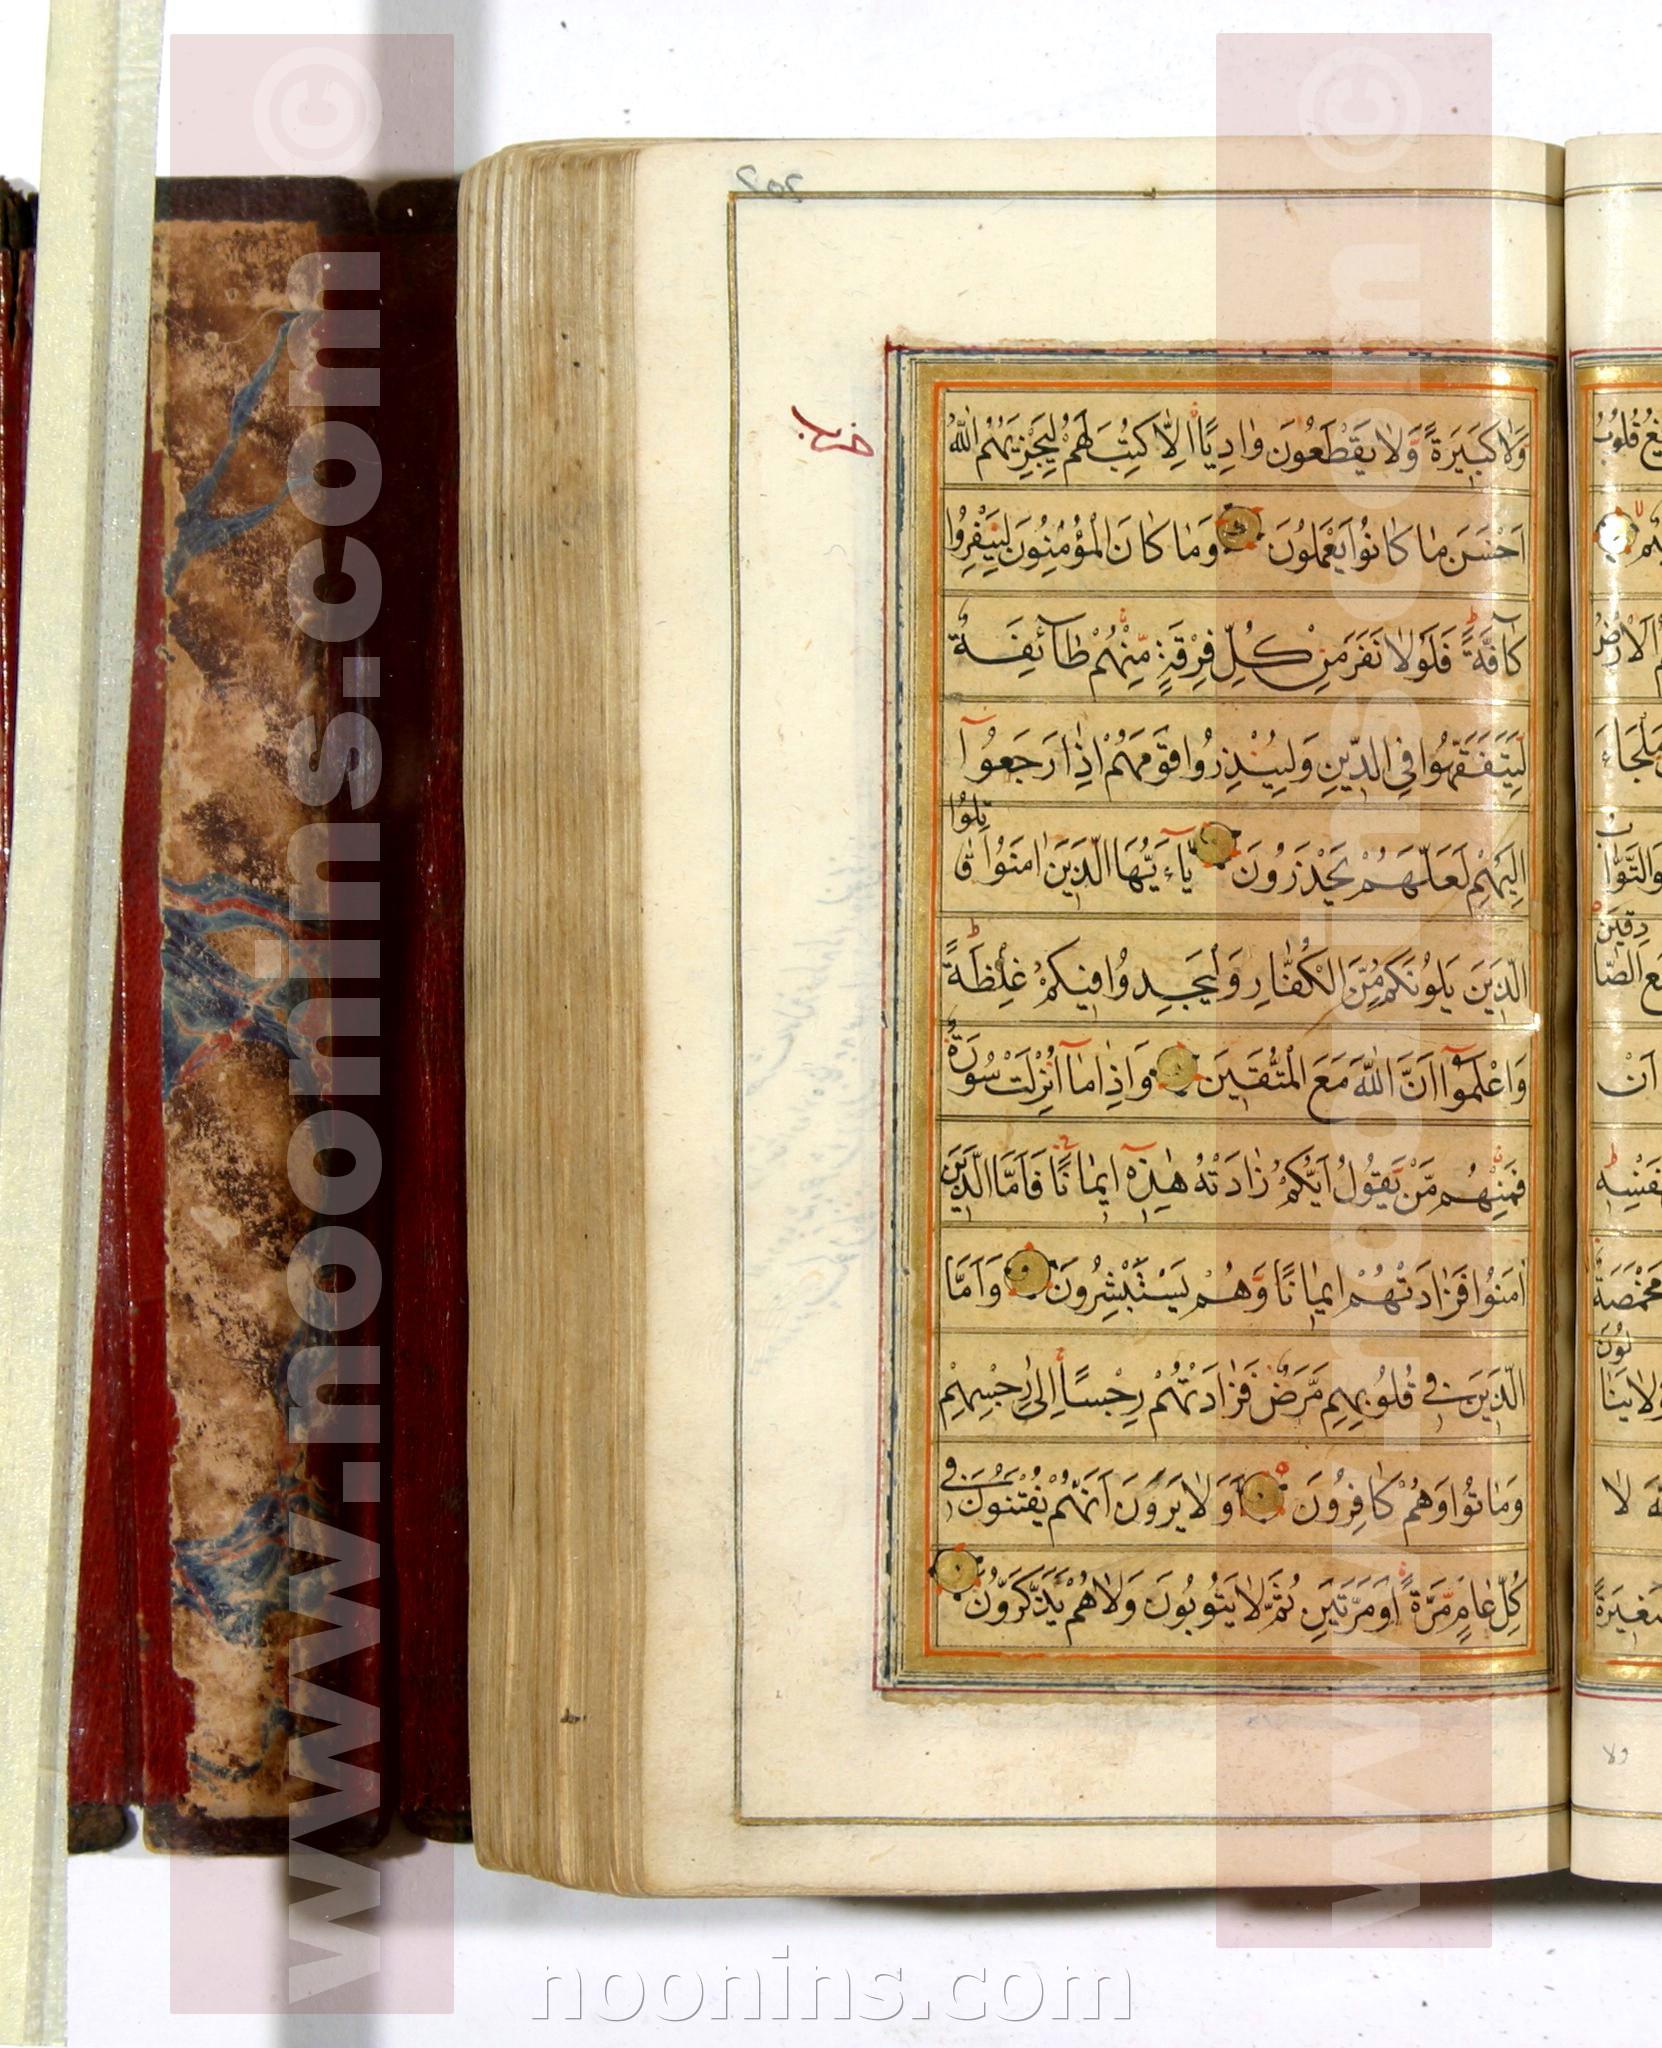 ۲۰۲
حزب
وَلَا كَبِيرَةً وَّلَا يَقْطَعُونَ وَادِيًا اِلَّا كُتِبَ لَهُمْ لِيَجْزِيَهُمُ اللّٰهُ
اَحْسَنَ مَا كَانُوا يَعْمَلُونَ وَمَا كَانَ الْمُؤْمِنُونَ لِيَنْفِرُوا
كَآفَّةً فَلَوْلَا نَفَرَ مِنْ كُلِّ فِرْقَةٍ مِّنْهُمْ طَآئِفَةٌ
لِّيَتَفَقَّهُوا فِي الدِّينِ وَلِيُنْذِرُوا قَوْمَهُمْ اِذَا رَجَعُوٓا
اِلَيْهِمْ لَعَلَّهُمْ يَحْذَرُونَ يَآءَيُّهَا الَّذِينَ اٰمَنُوا قَاتِلُوا
الَّذِينَ يَلُونَكُمْ مِّنَ الْكُفَّارِ وَلْيَجِدُوا فِيكُمْ غِلْظَةً
وَاعْلَمُوٓا اَنَّ اللّٰهَ مَعَ الْمُتَّقِينَ وَاِذَا مَآ اُنْزِلَتْ سُورَةٌ
فَمِنْهُمْ مَّنْ يَقُولُ اَيُّكُمْ زَادَتْهُ هٰذِهٓ اِيمَانًا فَاَمَّا الَّذِينَ
اٰمَنُوا فَزَادَتْهُمْ اِيمَانًا وَّهُمْ يَسْتَبْشِرُونَ وَاَمَّا
الَّذِينَ فِي قُلُوبِهِمْ مَّرَضٌ فَزَادَتْهُمْ رِجْسًا اِلٰى رِجْسِهِمْ
وَمَاتُوا وَهُمْ كَافِرُونَ اَوَلَا يَرَوْنَ اَنَّهُمْ يُفْتَنُونَ فِي
كُلِّ عَامٍ مَّرَّةً اَوْ مَرَّتَيْنِ ثُمَّ لَا يَتُوبُونَ وَلَا هُمْ يَذَّكَّرُونَ
ولا
www.noonins.com ©
www.noonins.com ©
noonins.com